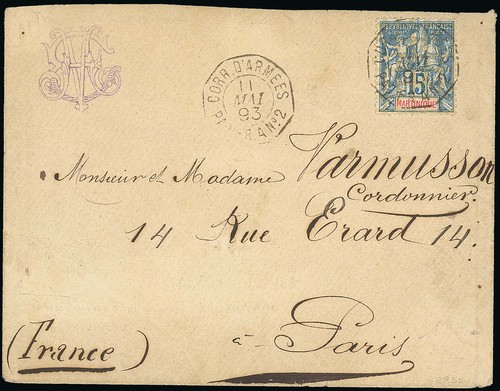 CORR. D'ARMEES
11
MAI
93
PAQ. FR. A Nº 2
REPUBLIQUE FRANÇAISE
COLONIES POSTES
15
MARTINIQUE
Monsieur et Madame Varmusson
Cordonnier.
14 Rue Erard 14.
à Paris
(France)